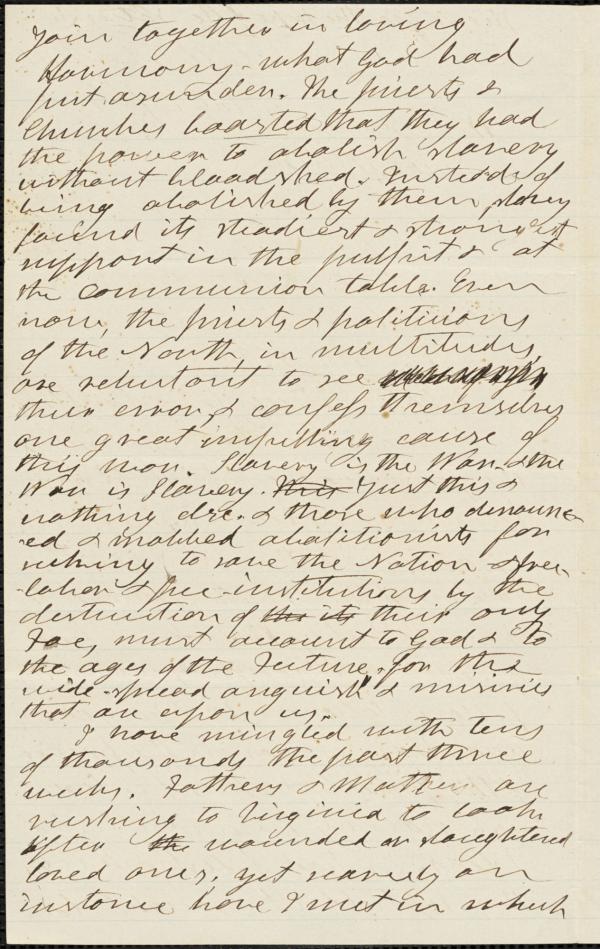 join together in loving
Harmony - what God had
put asunder. The priests &
Churches boasted that they had
the power to abolish slavery
without bloodshed. Instead of
being abolished by them, slavery
found its steadiest & strongest
support in the pulpit & at
the communion table. Even
now, the priests & politicians
of the North, in multitudes,
are reluctant to see
their error, & confess themselves
one great impelling cause of
this war. Slavery is the War & the
War is Slavery. This Just this &
nothing else. & those who denounc-
ed & mobbed abolitionists for
seeking to save the Nation & free-
labor & free-institutions by the
destruction of the its their only
Foe, must account to God & to
the ages of the Future, for the
wide-spread anguish & miseries
that are upon us.
I have mingled with tens
of thousands the past three
weeks. Fathers & Mothers are
rushing to Virginia to look
after the wounded or slaughtered
loved ones, yet scarcely an
instance have I met in which